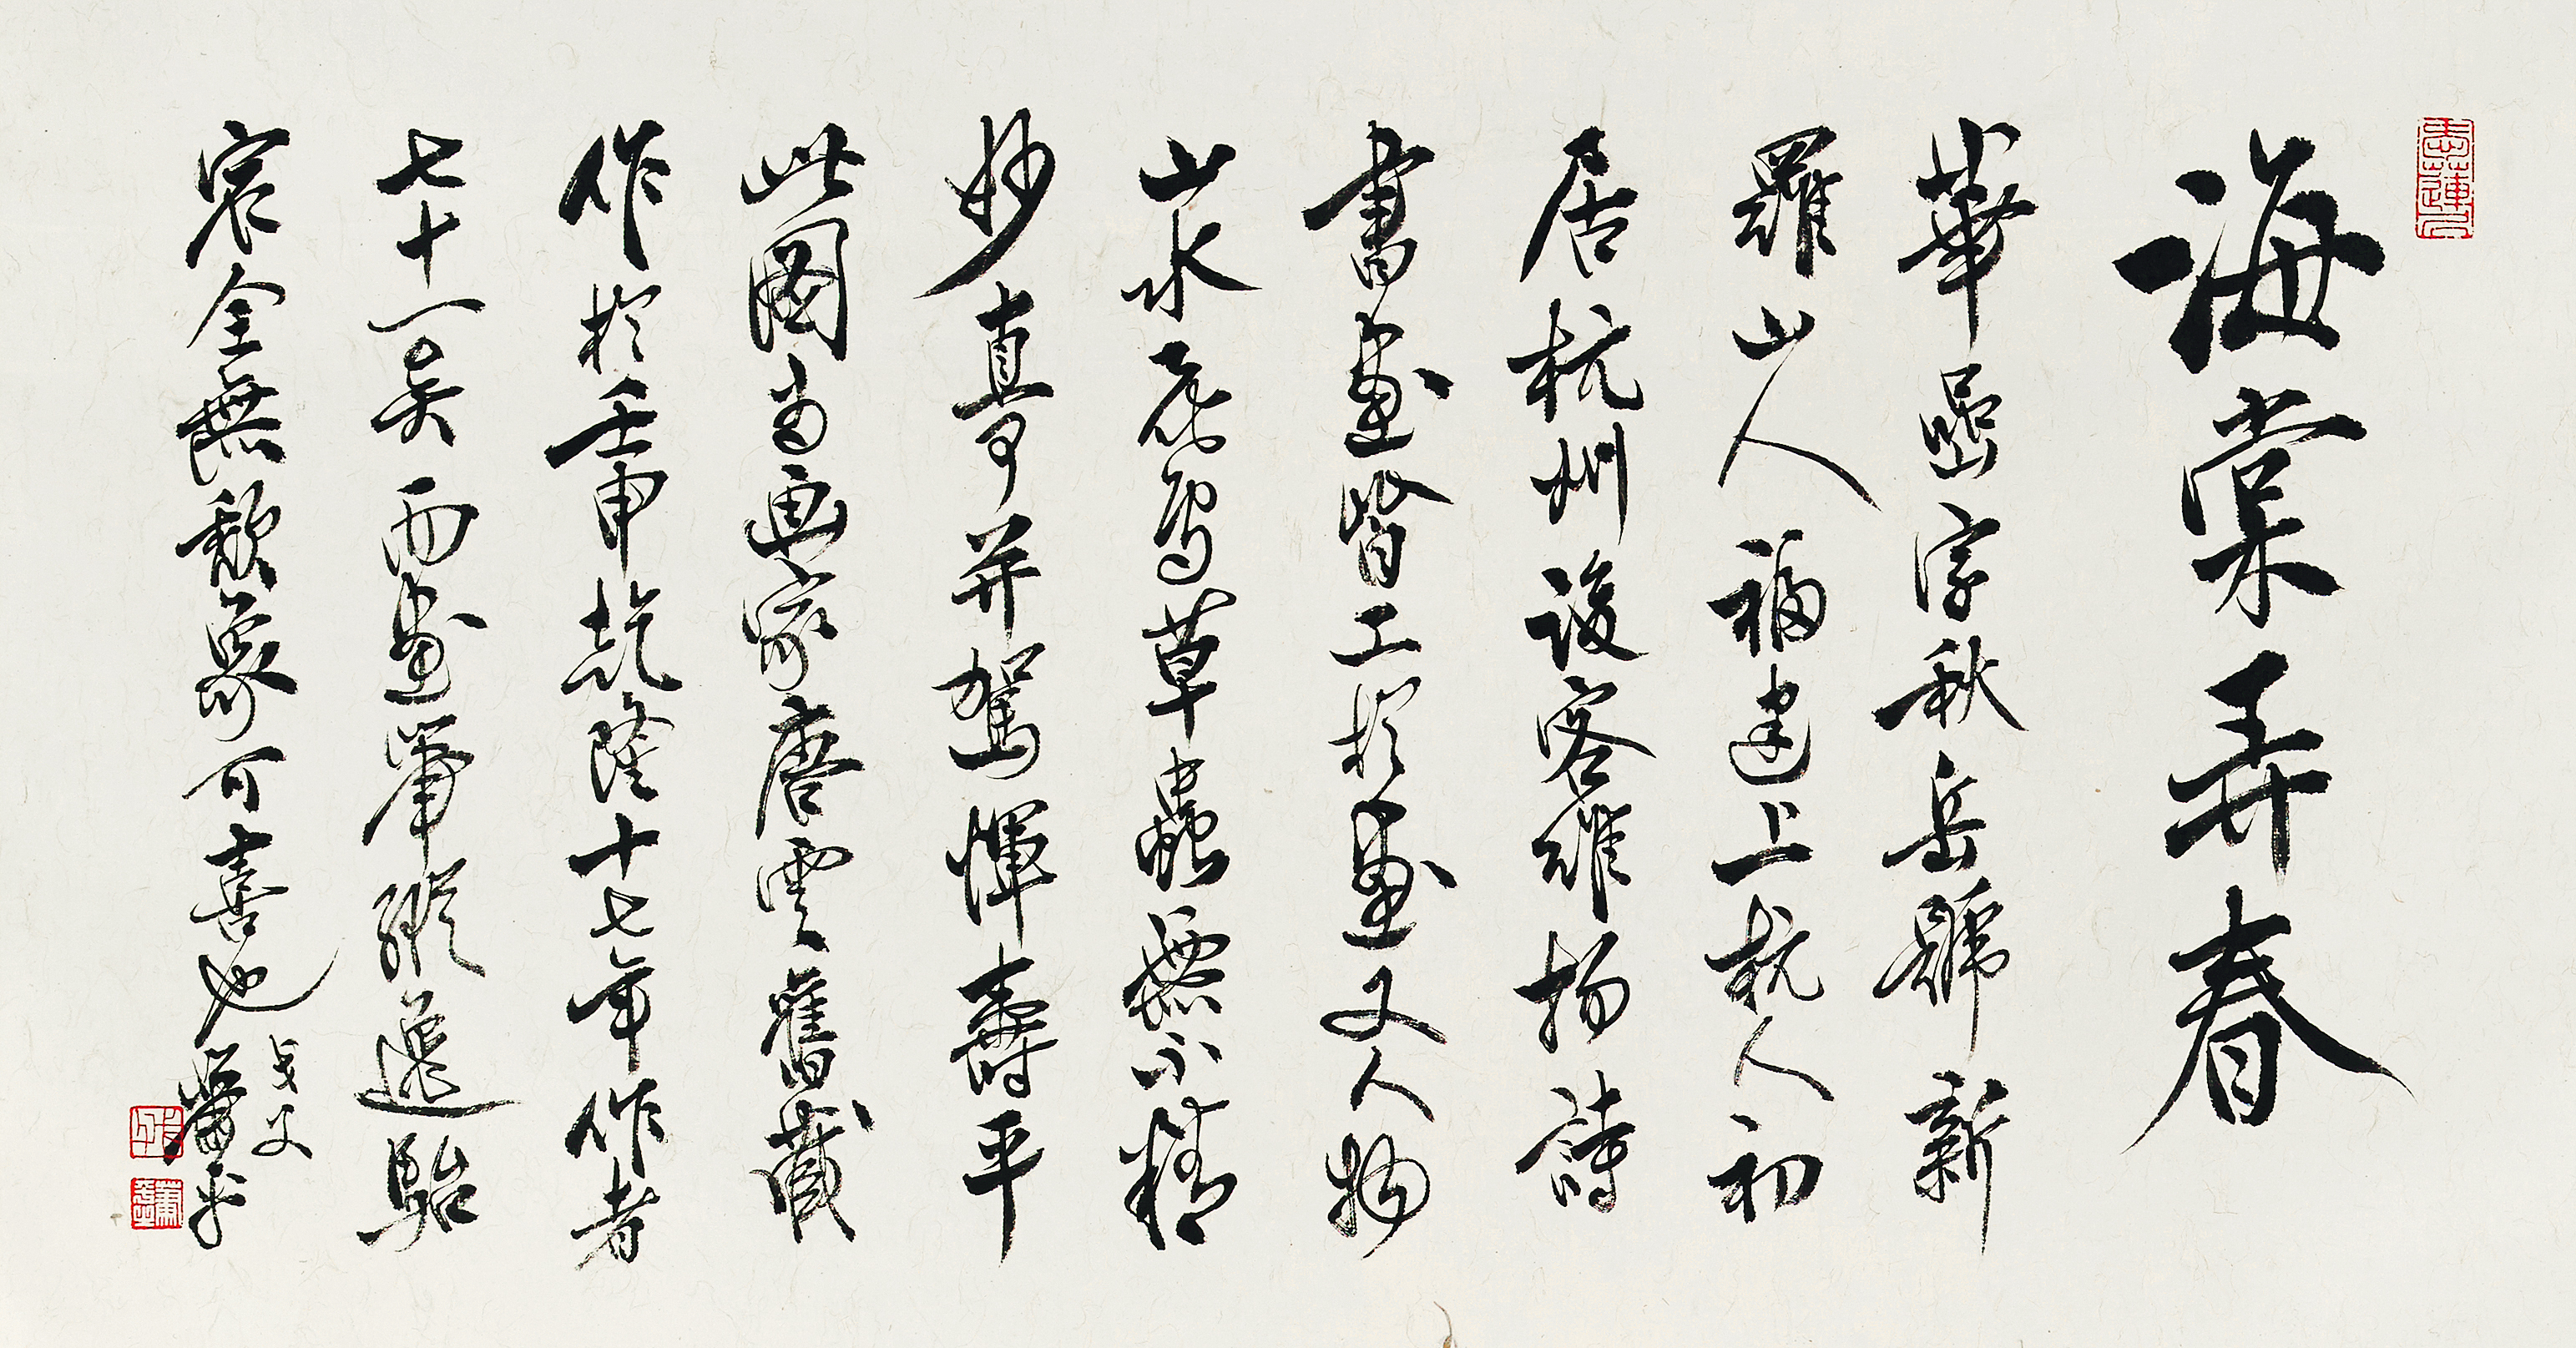 海棠弄春
華嵒字秋岳號新
羅山人福建上杭人初
居杭州後客維揚詩
書畫皆工於畫又人物
山水花鳥草蟲無不精
妙真可并駕惲壽平
此圖為画家唐雲舊藏
作於壬申乾隆十七年作者
七十一矣而畫筆縱逸駘
宕全無頹象可喜也
蕭平